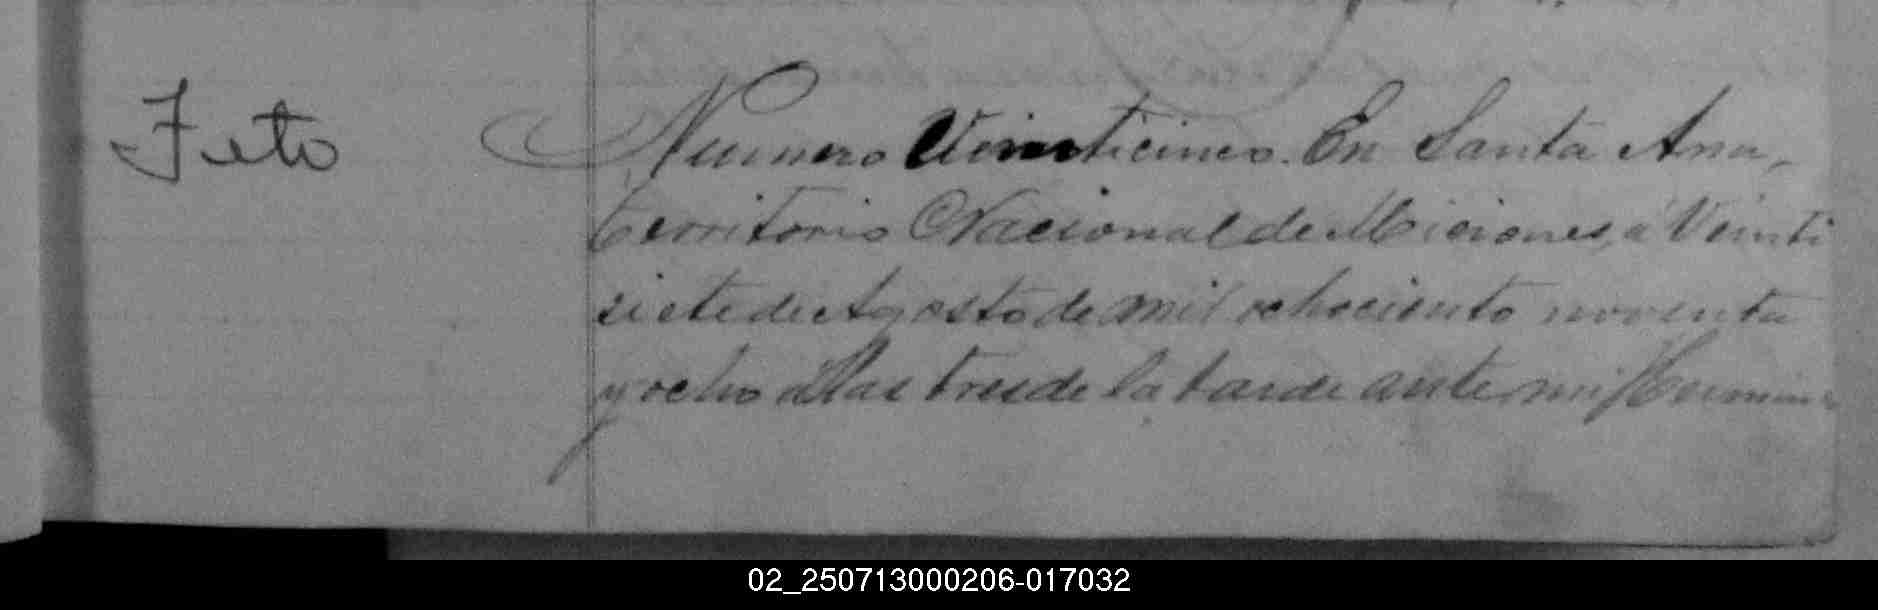 Feto
Numero Veinticinco. En Santa Ana,
territorio Nacional de Miciones, a Veinti
siete de Agosto de mil ochociento noventa
y ocho a las tres de la tarde ante mi Hermini
02_250713000206-017032